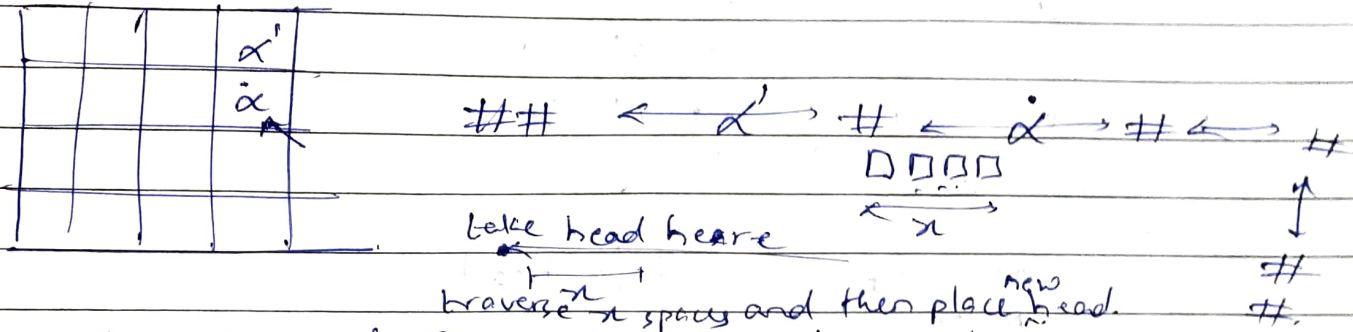 α'
α̇
## ← α' → # ← α̇ → # ↔ #
□ □ □ □
x
take head heare
x
traverse x spaces and then place new head.
#
#.